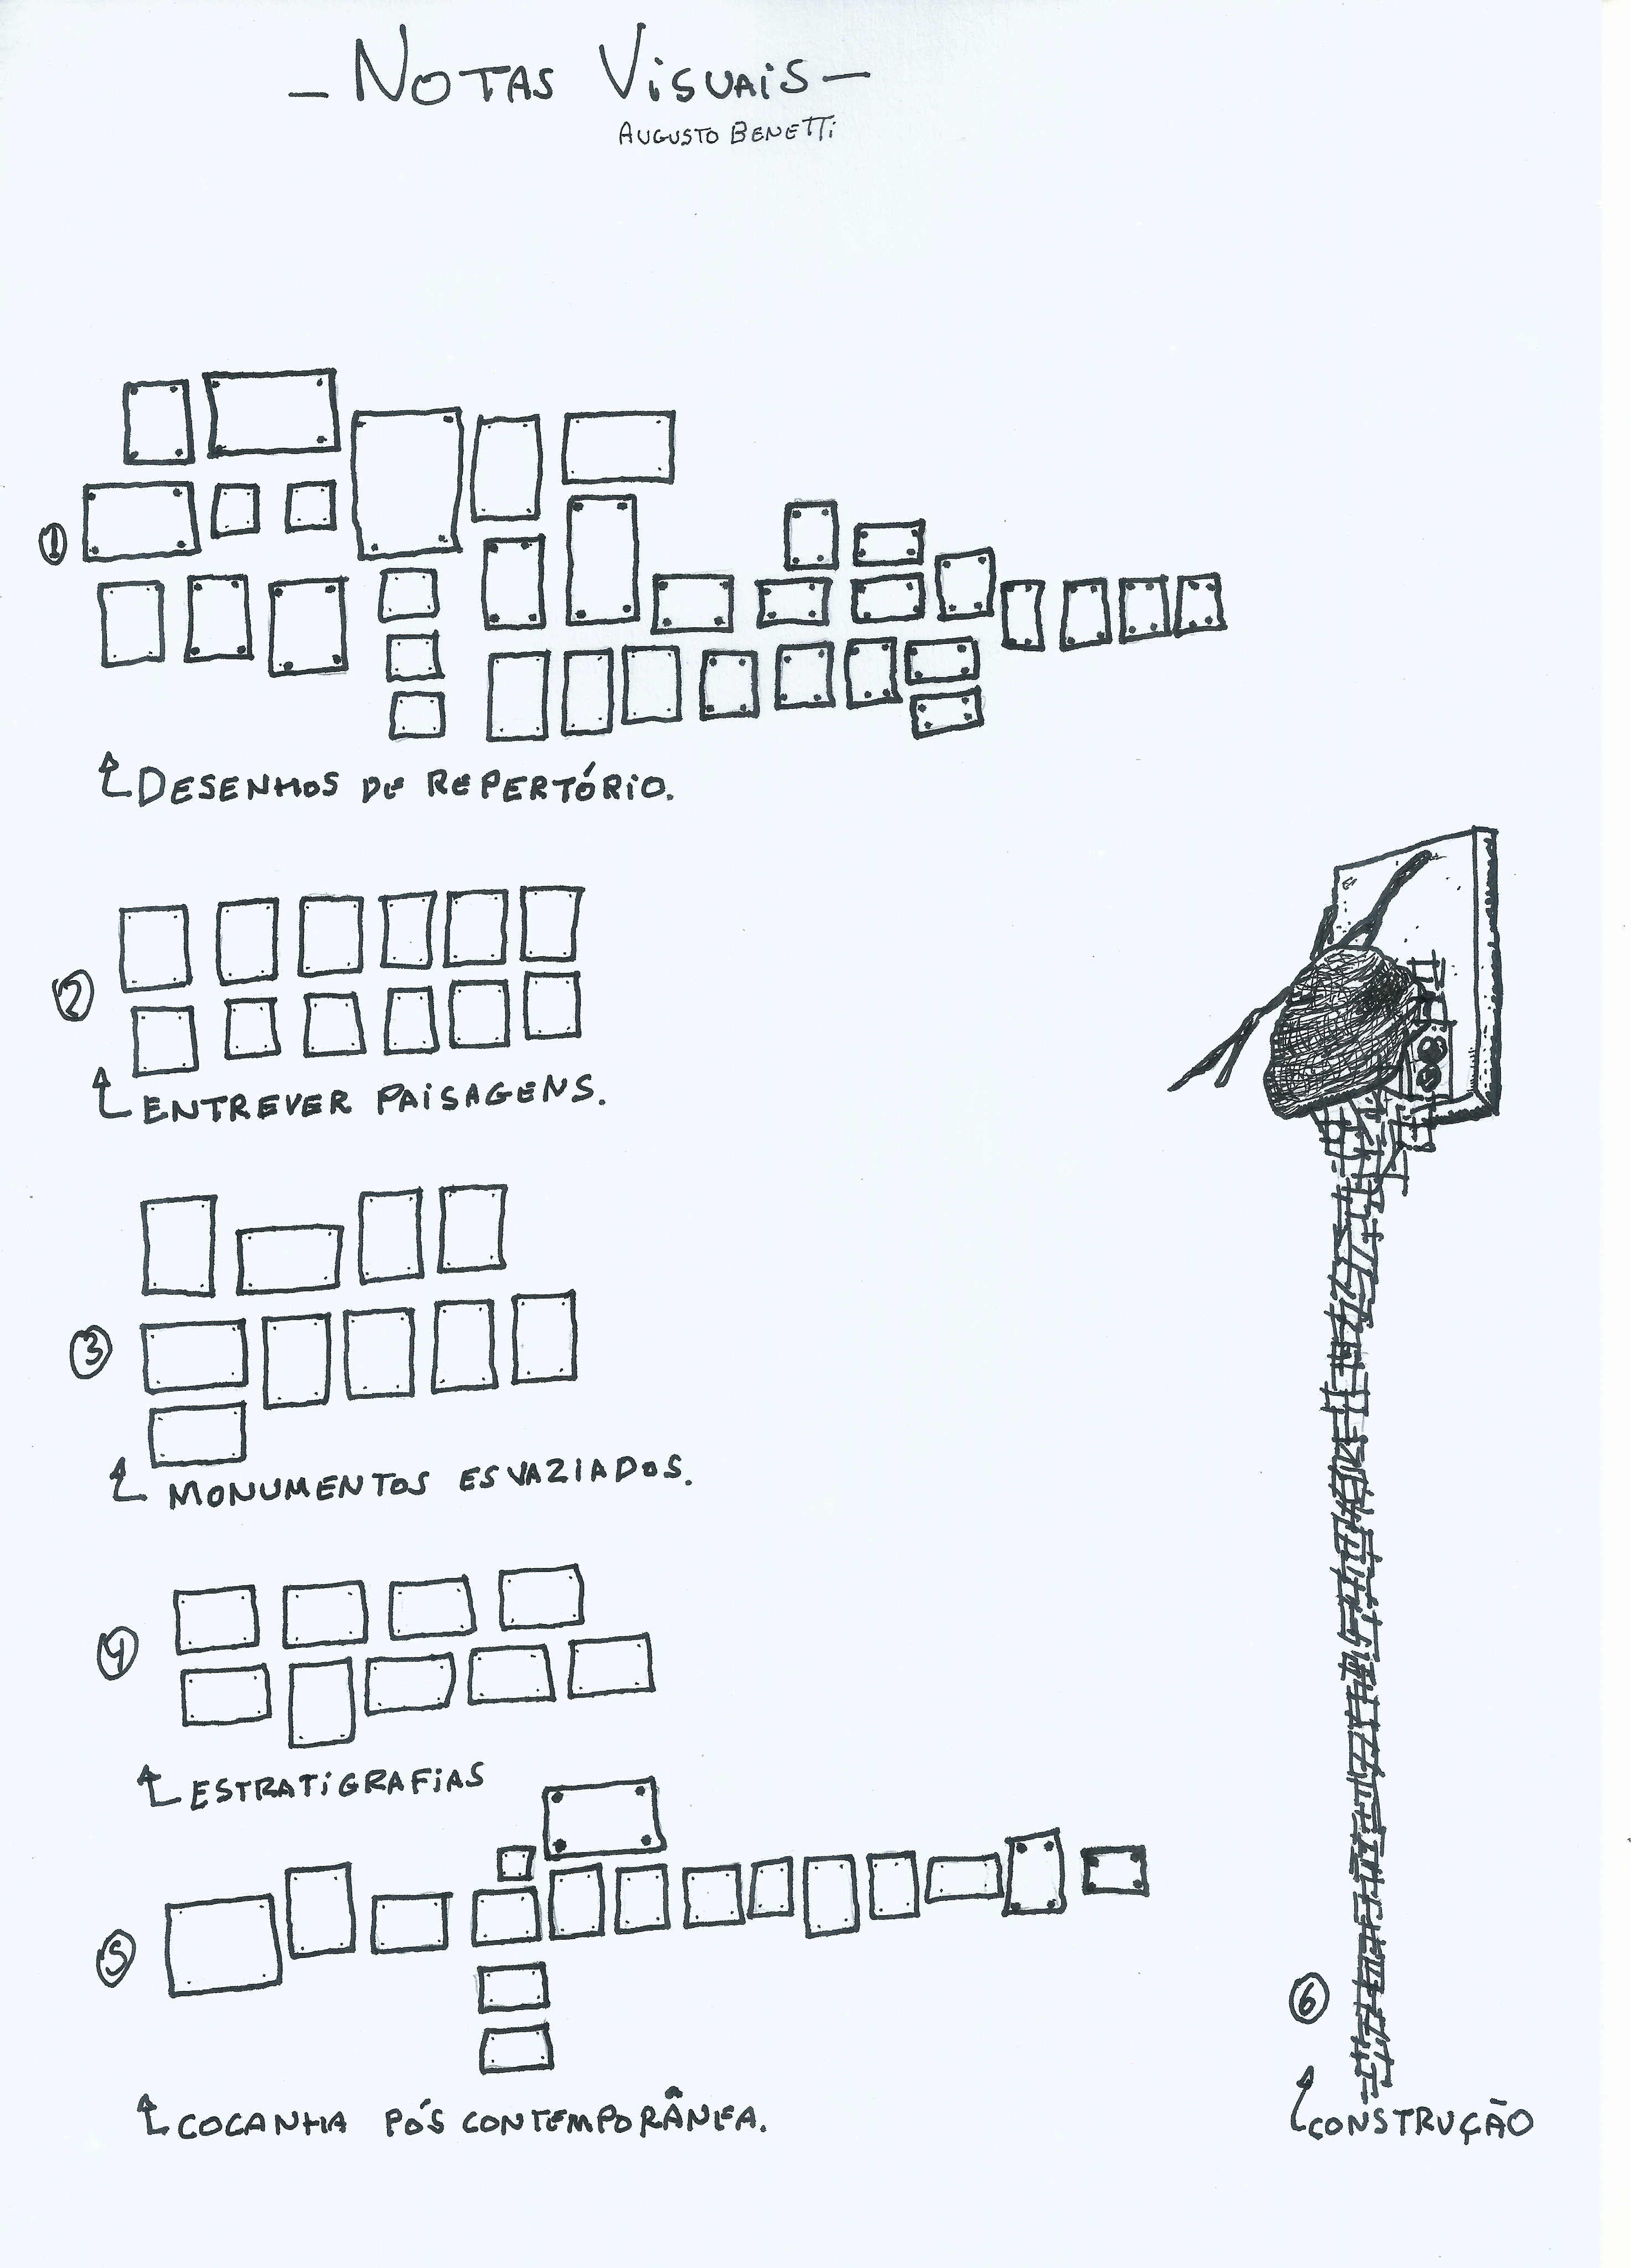 - NOTAS VISUAIS -
AUGUSTO BENETTI
1
DESENHOS DE REPERTÓRIO.
2
ENTREVER PAISAGENS.
3
MONUMENTOS ESVAZIADOS.
4
ESTRATIGRAFIAS
5
COCANHA PÓS CONTEMPORÂNEA.
6
CONSTRUÇÃO